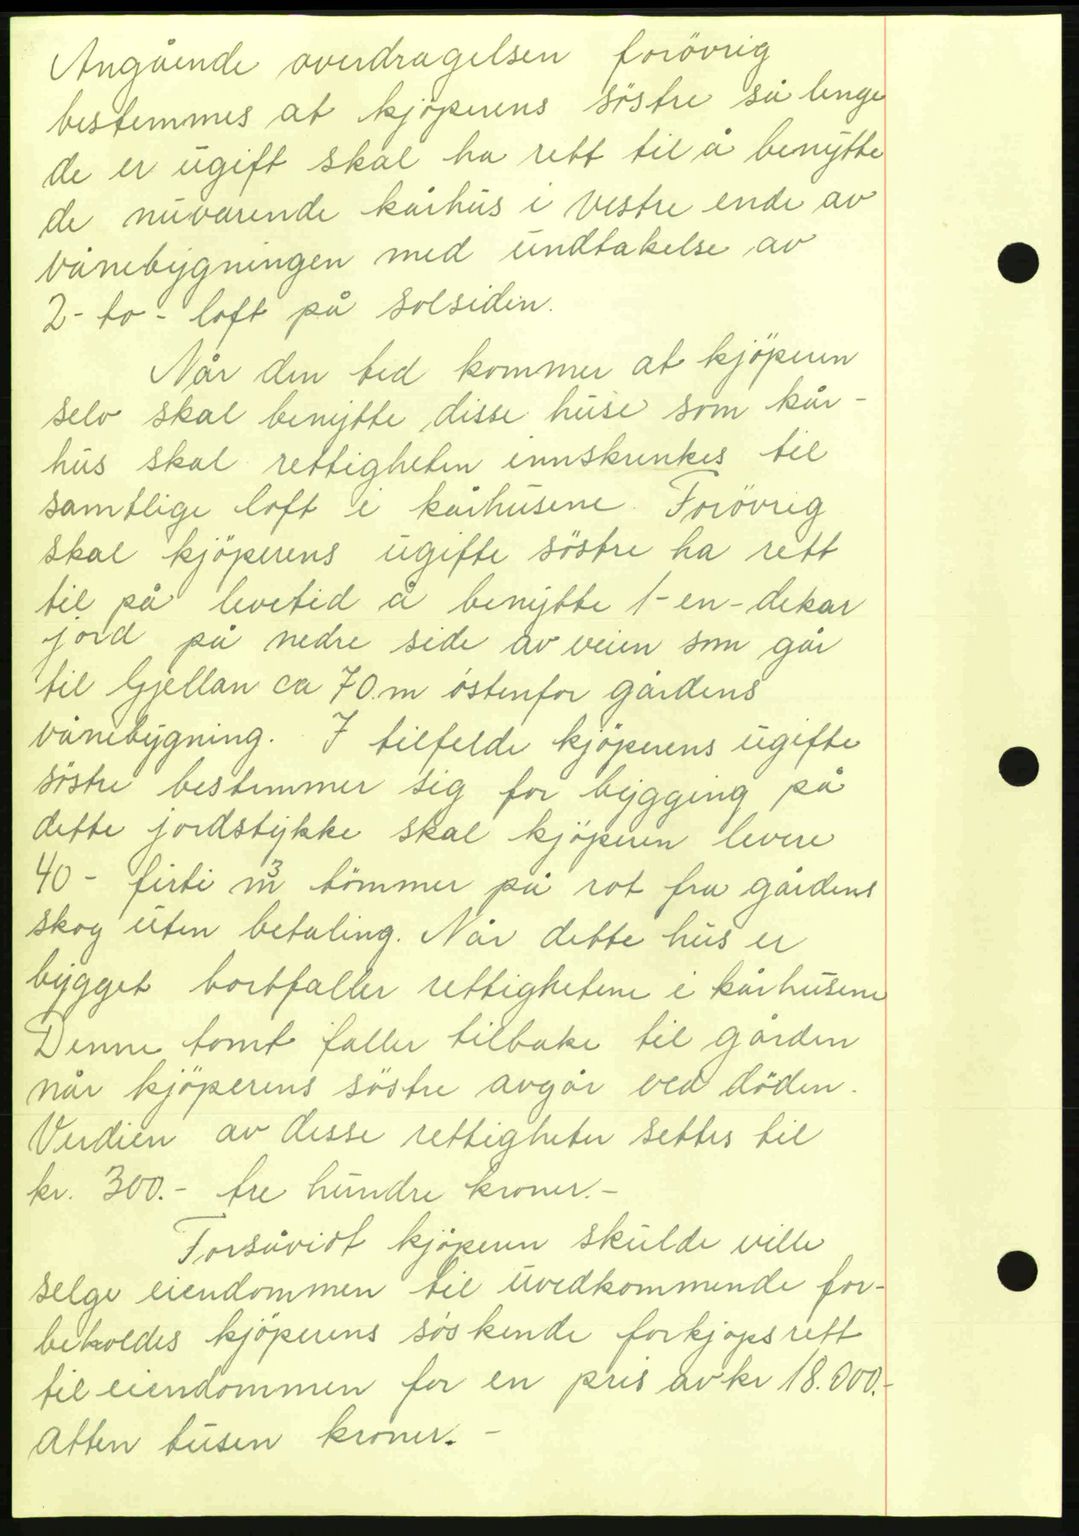 Angående overdragelsen forövrig
bestemmes at kjöperens söstre så lenge
de er ugift skal ha rett til å benytte
de nuvarende kårhus i vestre ende av
vånebygningen med undtakelse av
2- to - loft på solsiden.
Når den tid kommer at kjöperen
selv skal benytte disse huse som kår-
hus skal rettigheten innskrenkes til
samtlige loft i kårhusene. Forövrig
skal kjöperens ugifte söstre ha rett
til på levetid å benytte 1-en-dekar
jord på nedre side av veien som går
til Gjellan ca 70 m östenfor gårdens
vånebygning. I tilfelde kjöperens ugifte
söstre bestemmer sig for bygging på
dette jordstykke skal kjöperen levere
40 - firti m³ tömmer på rot fra gårdens
skog uten betaling. Når dette hus er
bygget bortfaller rettighetene i kårhusene
Denne tomt faller tilbake til gården
når kjöperens söstre avgår ved döden.
Verdien av desse rettigheter settes til
kr. 300.- tre hundre kroner.-
Forsåvidt kjöperen skulde ville
selge eiendommen til uvedkommende for-
beholdes kjöperens söskende forkjøpsrett
til eiendommen for en pris av kr 18.000.-
Atten tusen kroner. -